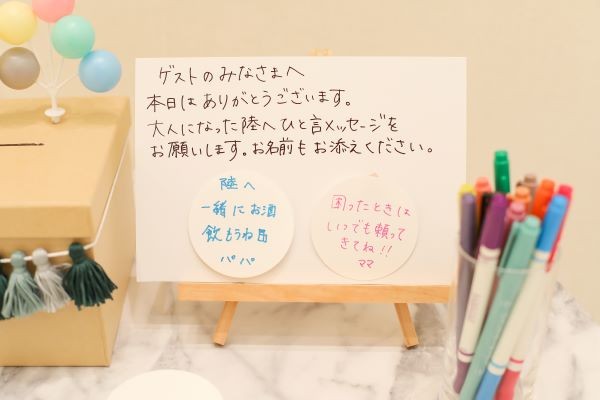 ゲストのみなさまへ
本日はありがとうございます。
大人になった陸へひと言メッセージを
お願いします。お名前もお添えください。
陸へ
一緒にお酒
飲もうね
パパ
困ったときは
いつでも頼って
きてね!!
ママ